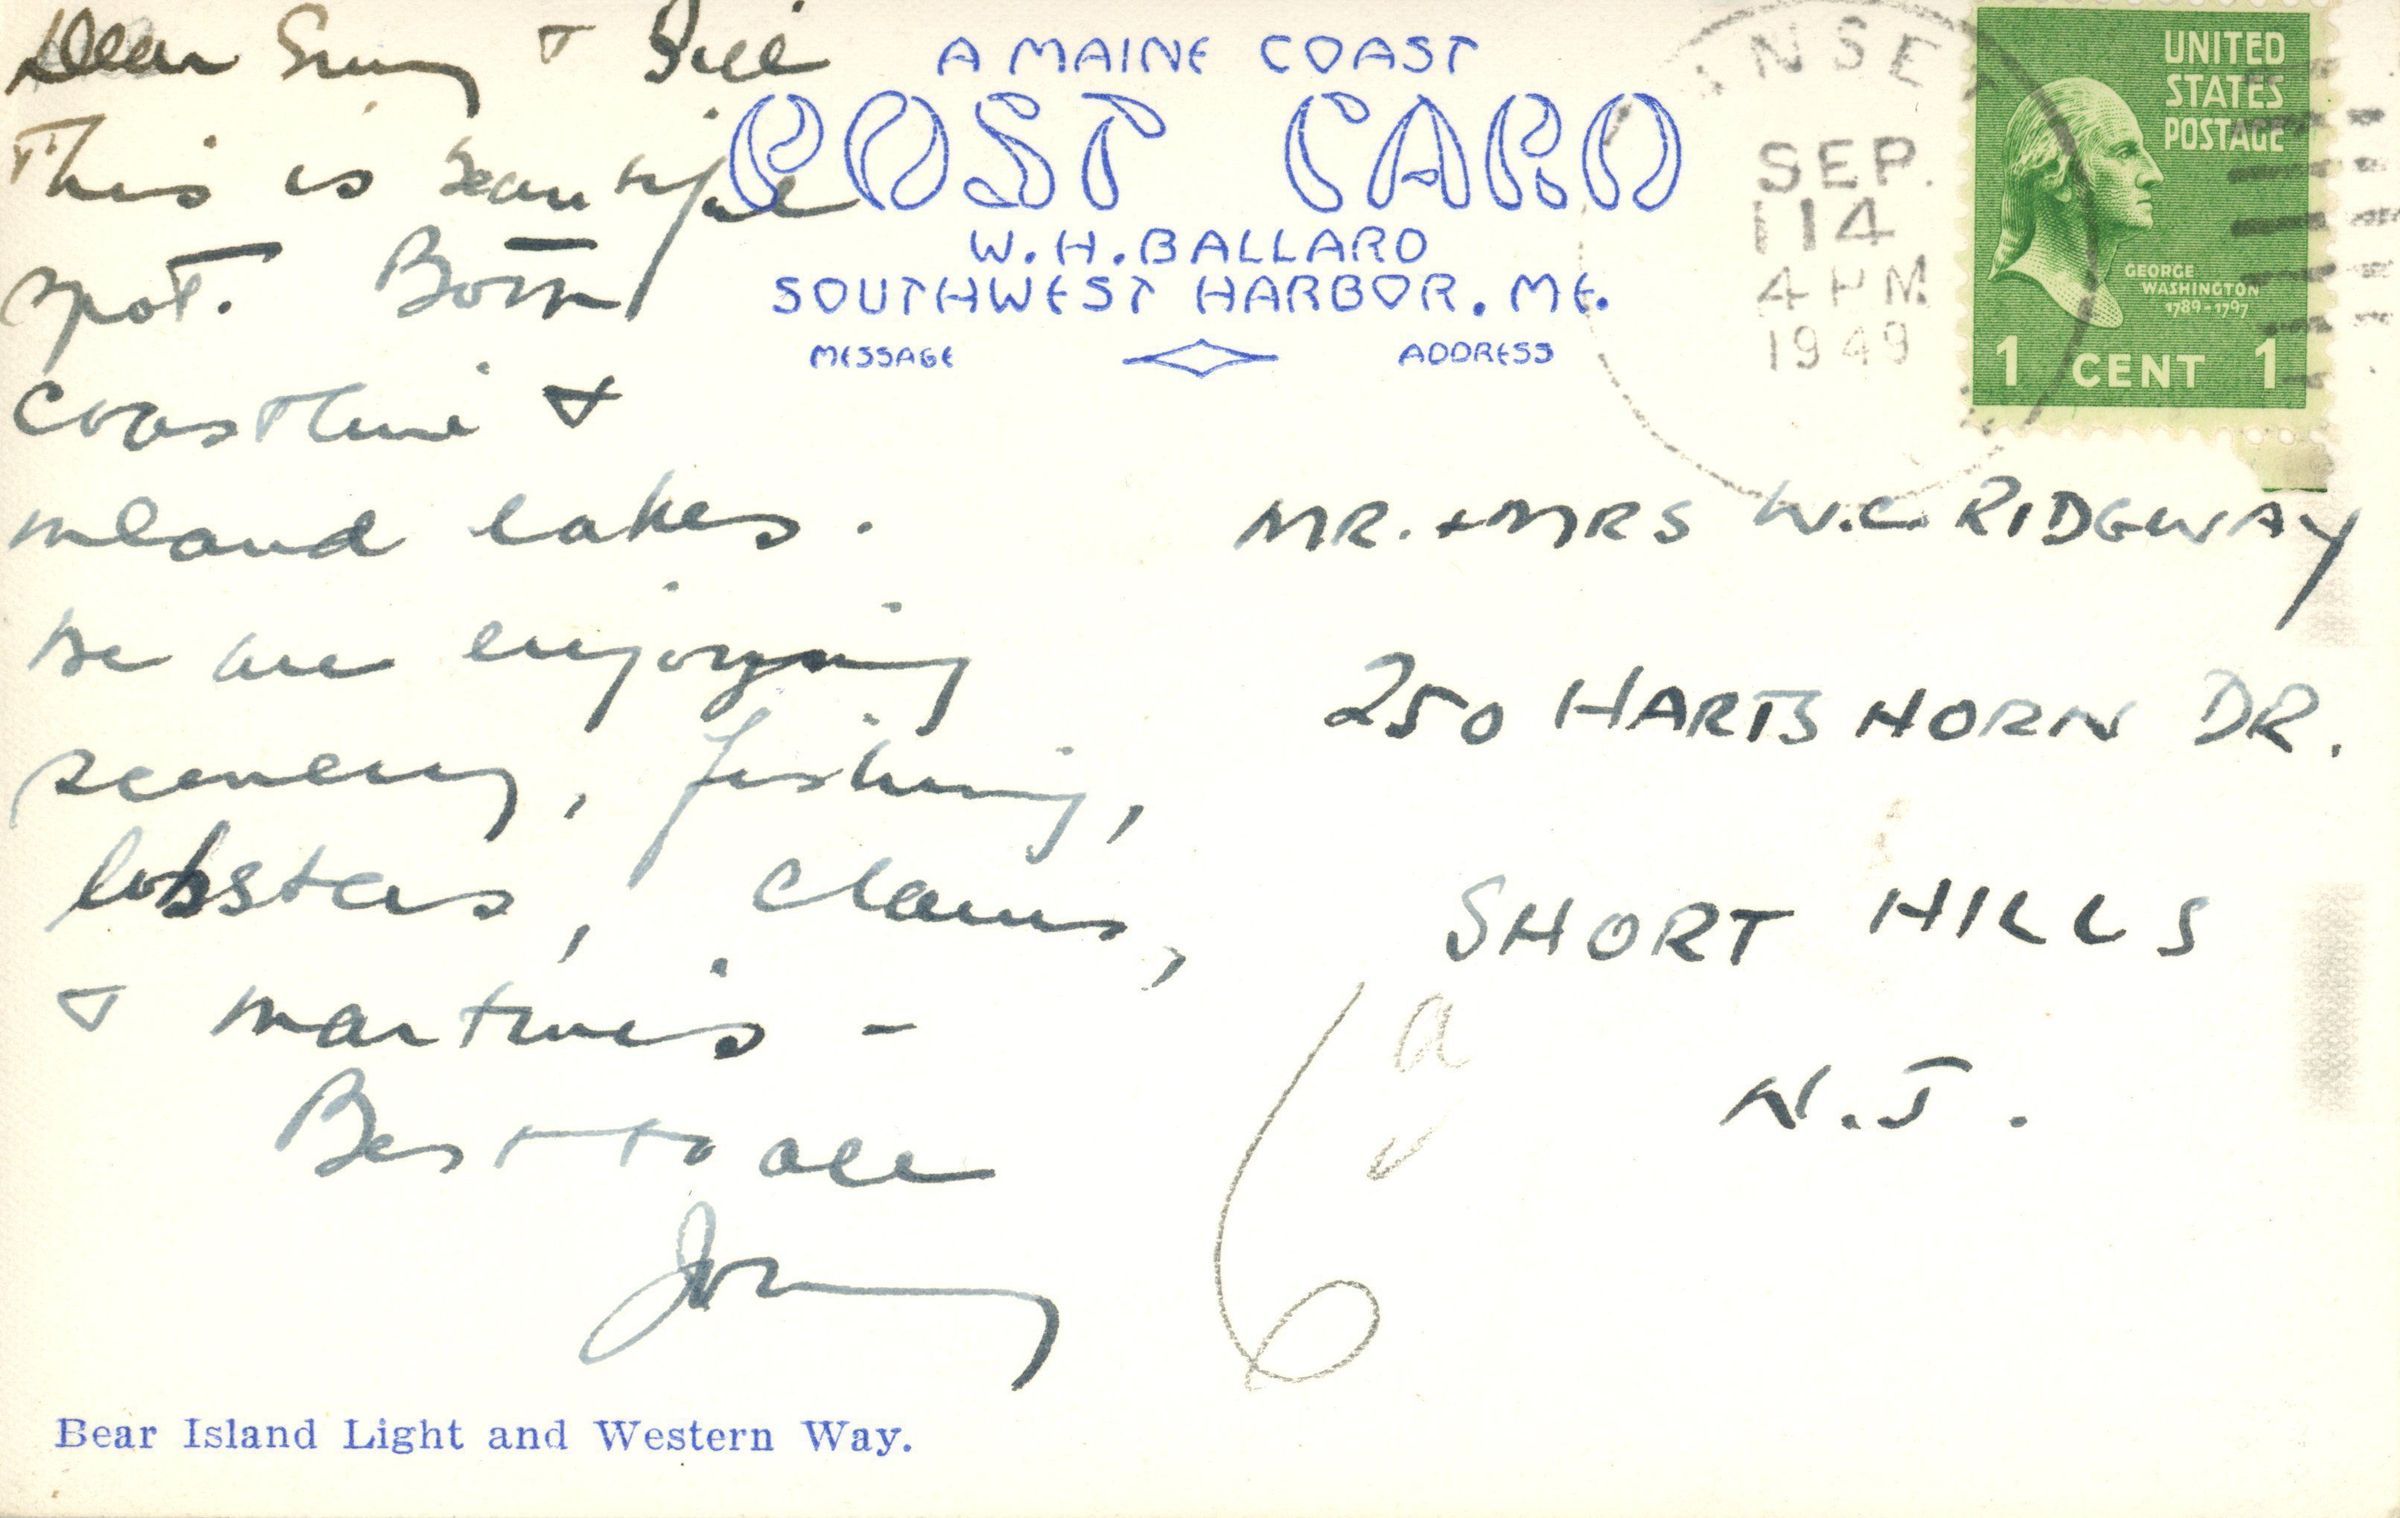 Dear & Bill
This is beautiful
spot. Both
coastline &
inland lakes.
We are enjoying
scenery, fishing,
lobsters, clams,
& martinis -
Best to all
A MAINE COAST
POST CARD
W. H. BALLARD
SOUTHWEST HARBOR, ME.
MESSAGE ADDRESS
SEP.
14
4 PM
1949
UNITED
STATES
POSTAGE
GEORGE
WASHINGTON
1789-1797
1 CENT 1
MR. + MRS W.C. RIDGWAY
250 HARTSHORN DR.
SHORT HILLS
N.J.
Bear Island Light and Western Way.